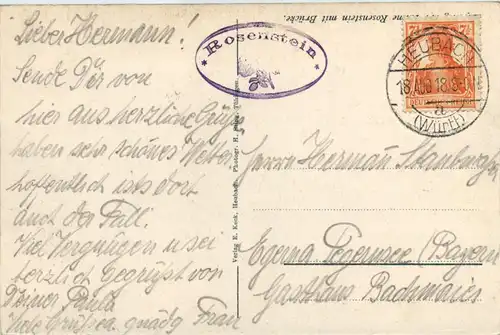 Lieber Hermann!
Sende Dir von
hier aus herzliche Grüße
haben sehr schönes Wetter
hoffentlich ists dort
auch der Fall.
Viel Vergnügen u sei
herzlich gegrüßt von
Deiner Paula
Viele Grüße a. gnädg Frau
Rosenstein
Rosenstein mit Brücke.
HEUBACH
18.AUG.18.
a
(Württ)
Verlag R. Kock, Heubach. Photogr. H.
Herrn Hermann
Egern a Tegernsee (Bayern)
Gasthaus Bachmaier